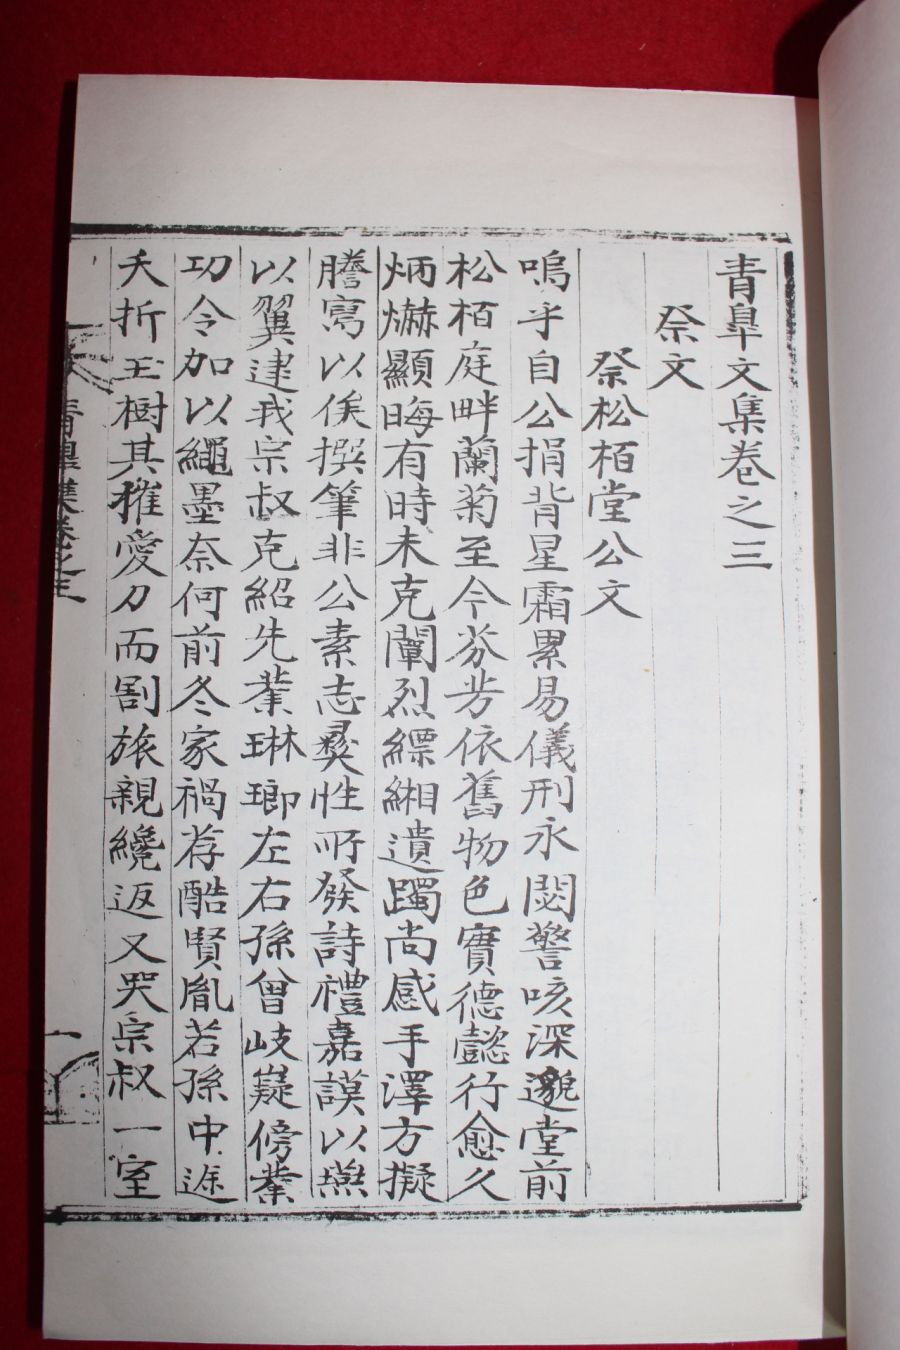 青皐文集卷之三
祭文
祭松栢堂公文
嗚乎自公捐背星霜累易儀刑永閟警咳深邈堂前
松栢庭畔蘭菊至今芬芳依舊物色實德懿行愈久
炳爀顯晦有時未克闡烈縹緗遺躅尚感手澤方擬
謄寫以俟撰筆非公素志彛性所發詩禮嘉謨以燕
以翼逮我宗叔克紹先業琳瑯左右孫曾岐嶷傍業
功令加以繩墨奈何前冬家禍荐酷賢胤若孫中途
夭折玉樹其摧愛刀而割旅親纔返又哭宗叔一室
靑皐集卷之三
一